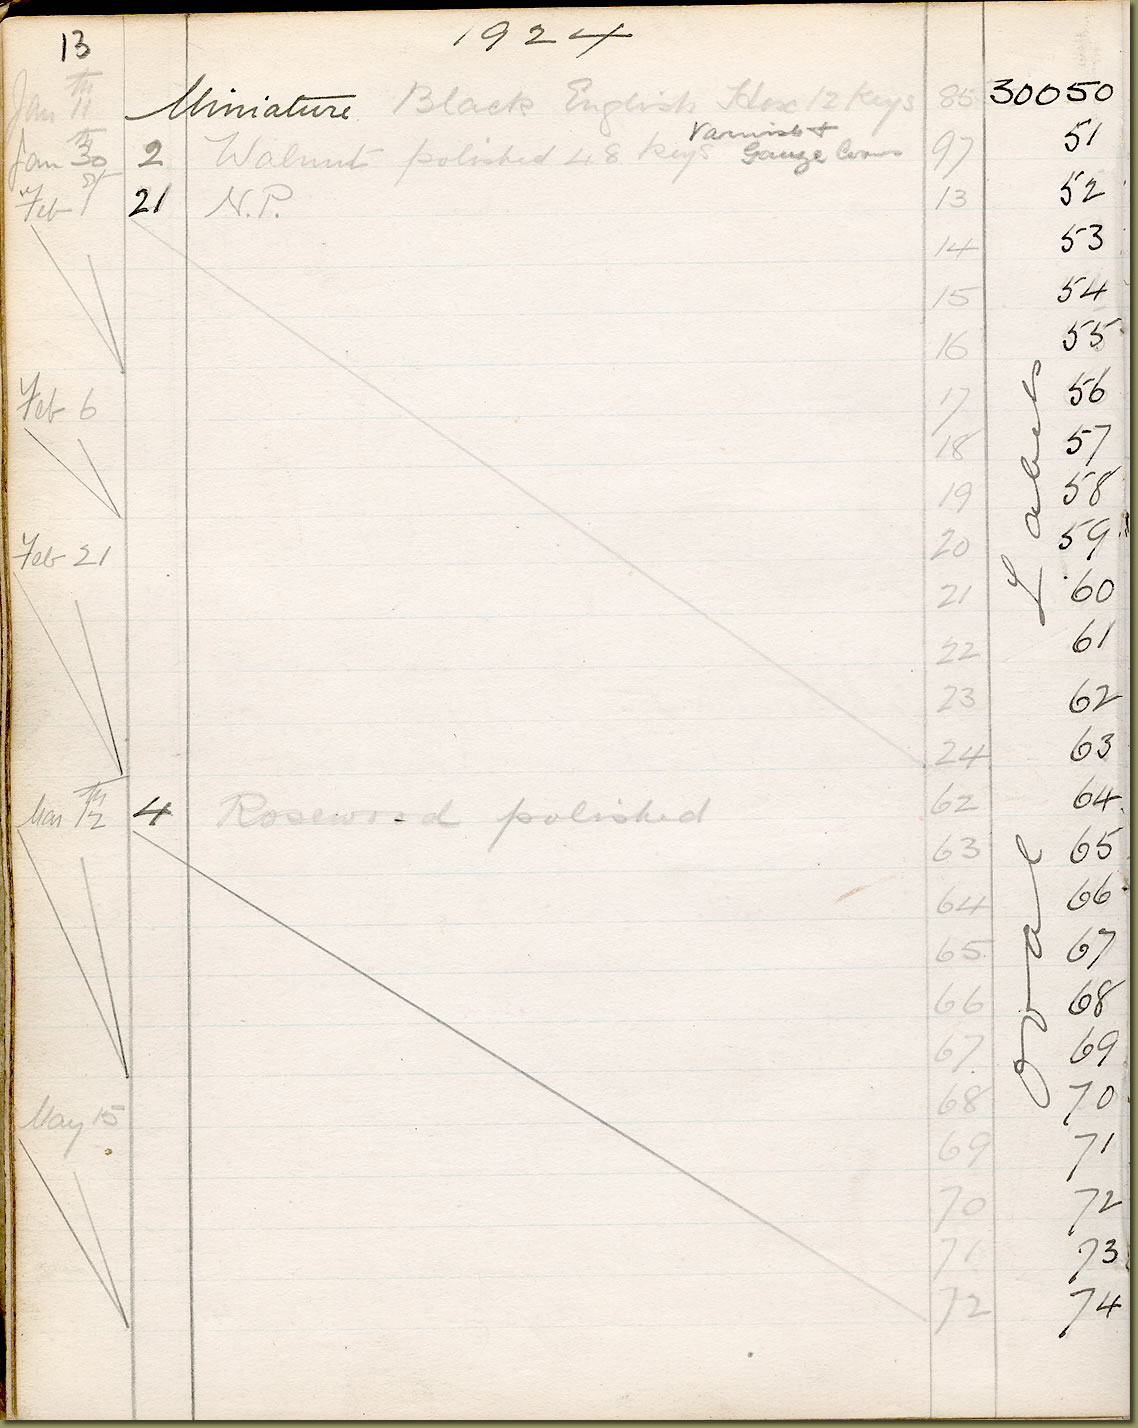 13 1924
Jan 11th Miniature Black English Hex 12 Keys 85 30050
Jan 30th 2 Walnut polished 48 Keys Varnish + 97 51
Gauze
Feb 1st 21 N.P. 13 52
14 53
15 54
16 55
Feb 6 17 56
18 57
19 58
20 59
Feb 21 21 60
22 61
23 62
24 63
Mar 12th 4 Rosewood polished 62 64
63 65
64 66
65 67
66 68
67 69
68 70
May 15 69 71
70 72
71 73
72 74
Oval Label